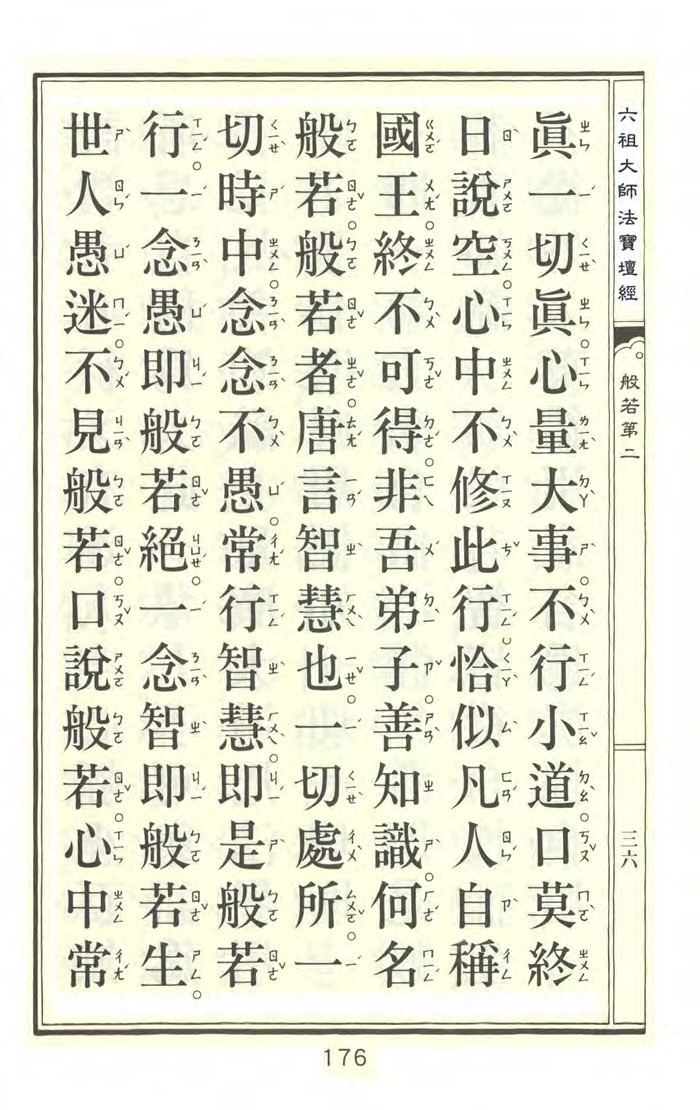 六祖大師法寶壇經
般若第二
三六
眞一切眞。心量大事。不行小道。口莫終
日說空。心中不修此行。恰似凡人自稱
國王。終不可得。非吾弟子。善知識。何名
般若。般若者。唐言智慧也。一切處所。一
切時中。念念不愚。常行智慧。即是般若
行。一念愚即般若絕。一念智即般若生。
世人愚迷。不見般若。口說般若。心中常
176